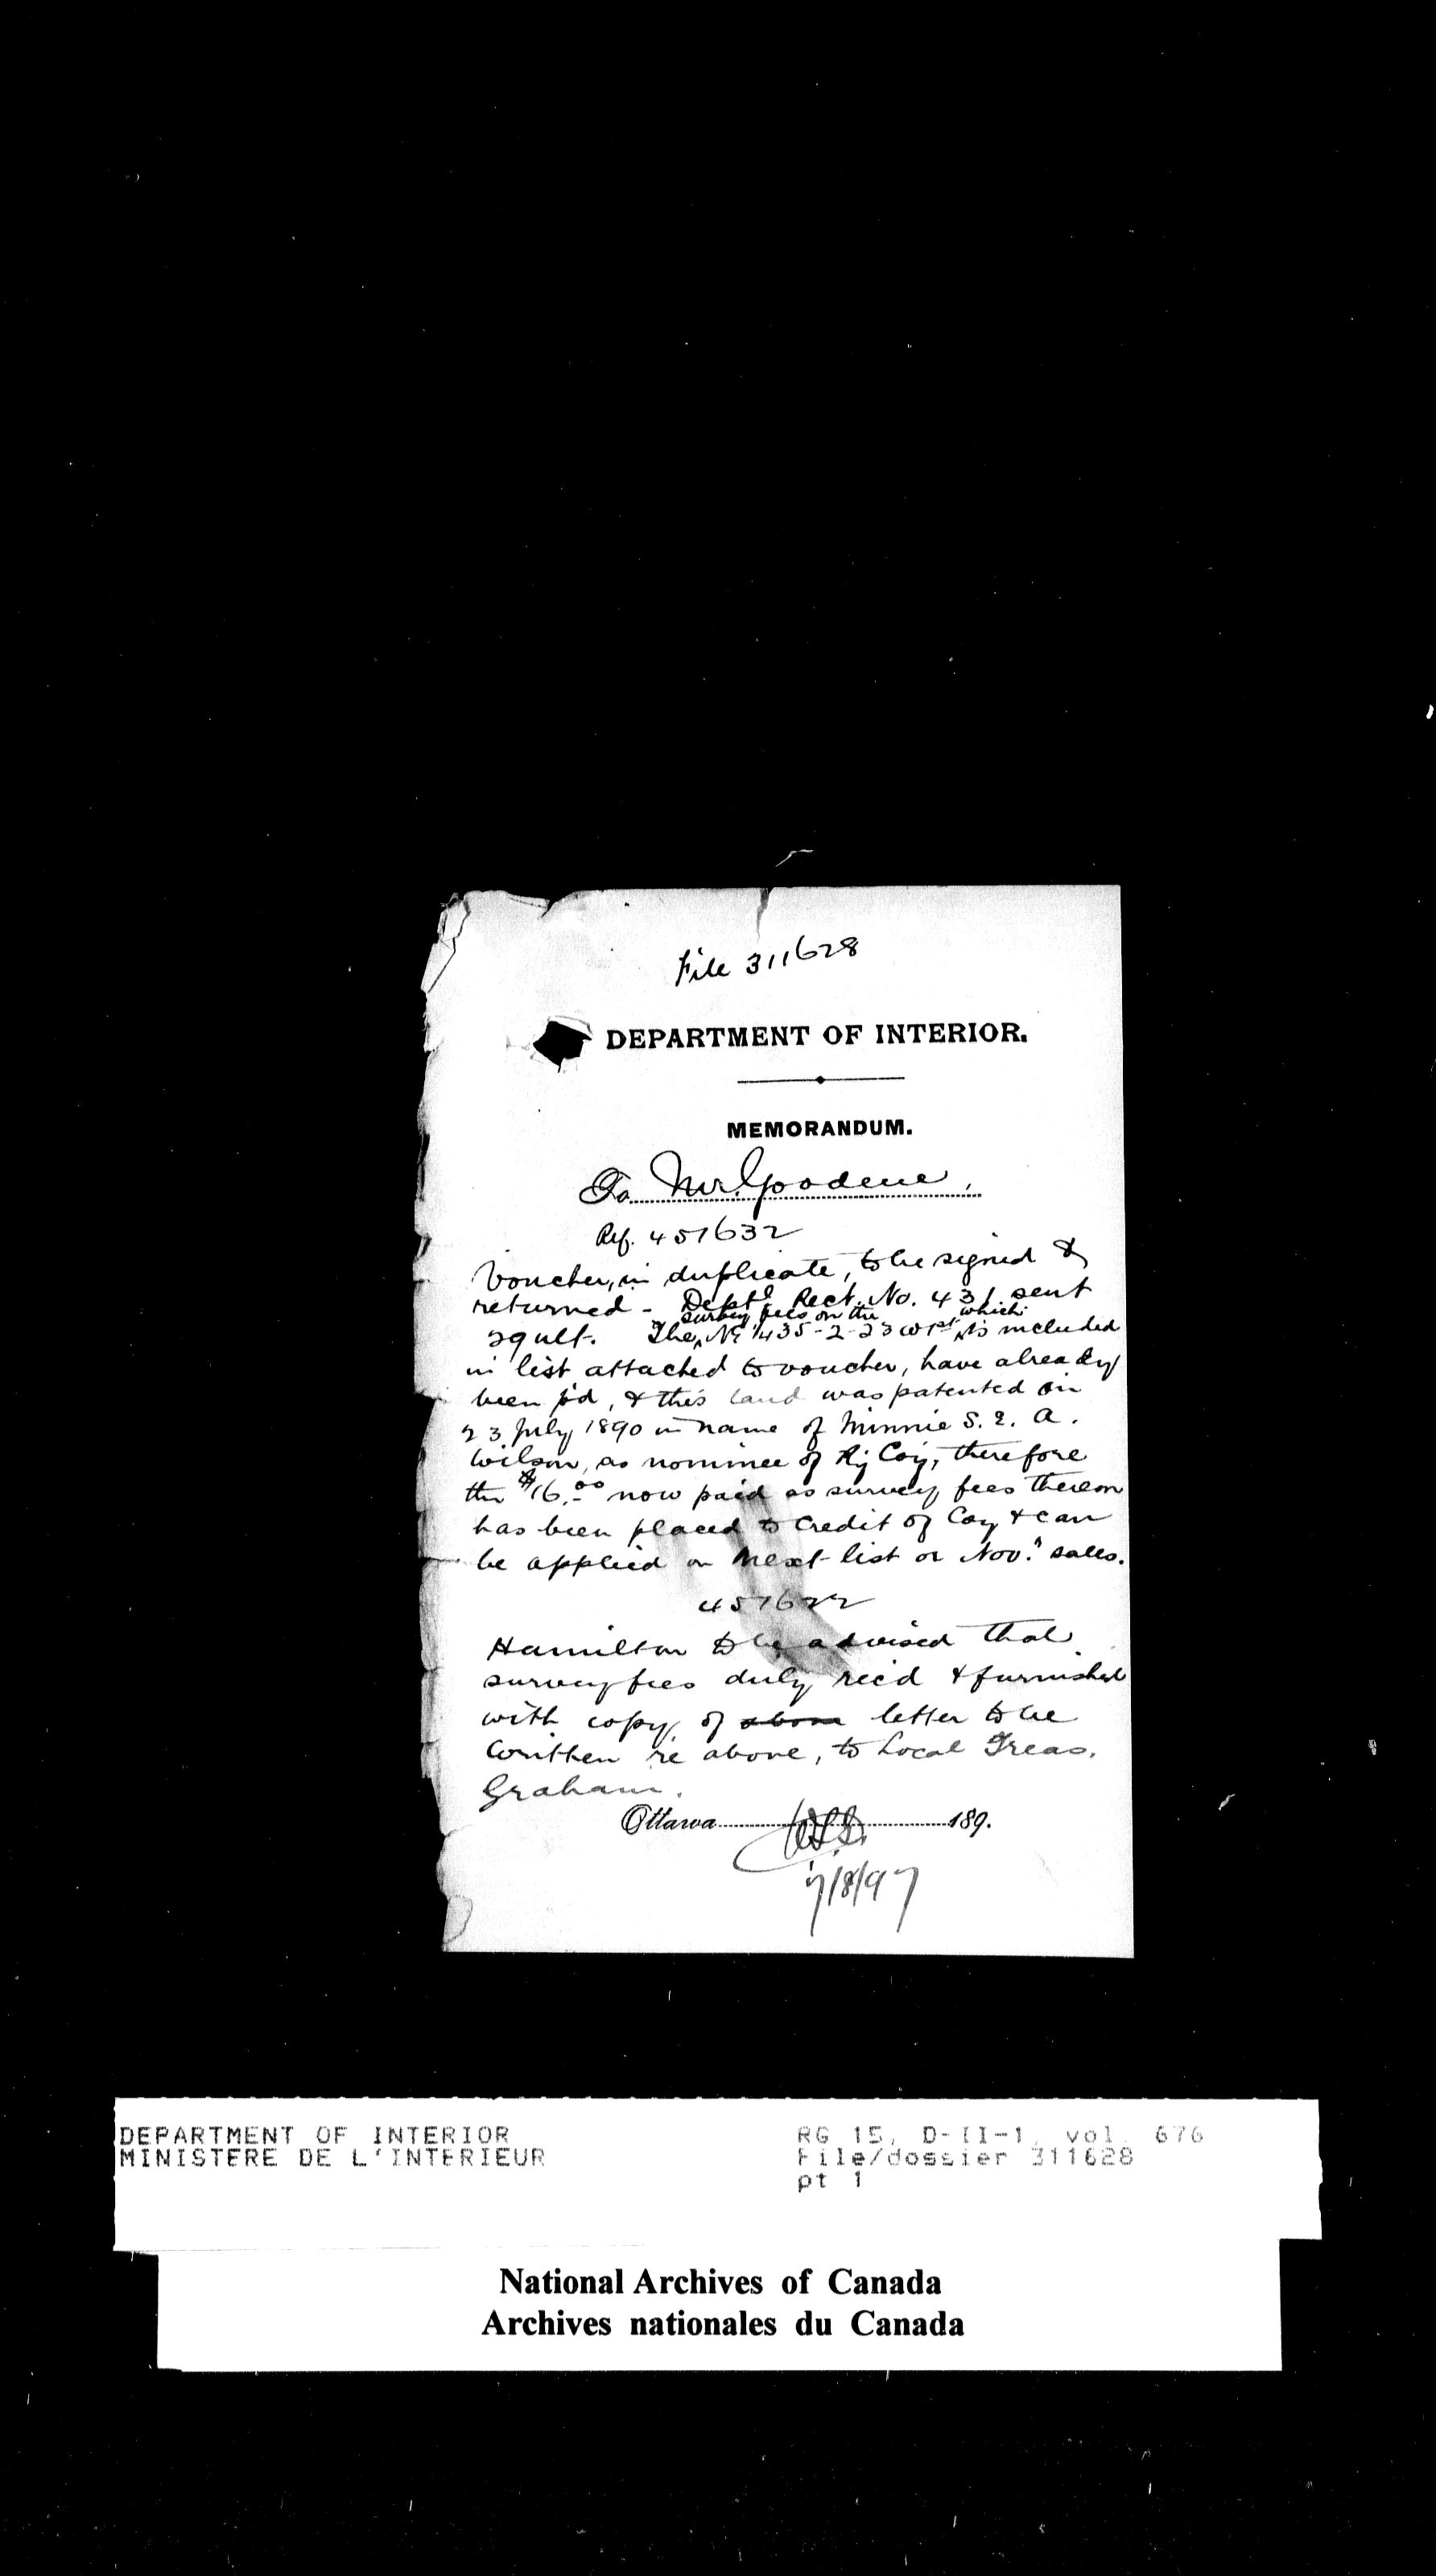 File 311628
DEPARTMENT OF INTERIOR.
MEMORANDUM.
To Mr. Goodeve,
Ref. 451632
Voucher, in duplicate, to be signed &
returned - Dept'l Rect. No. 431 sent
survey fees on the which
The NE 1/4 35-2-23 W 1st is included
in list attached to voucher, have already
been p'd, & this land was patented on
23 July 1890 in name of Minnie S. E. A.
Wilson, as nominee of Ry Coy, therefore
the $16.00 now paid as survey fees thereon
has been placed to credit of Coy & can
be applied on next list or Nov. sales.
451622
Hamilton to be advised that
survey fees duly rec'd & furnished
with copy of above letter to be
written re above, to Local Treas.
Graham.
Ottawa 189.
7/8/97
DEPARTMENT OF INTERIOR
MINISTERE DE L'INTERIEUR
RG 15, D-II-1, vol. 676
File/dossier 311628
pt 1
National Archives of Canada
Archives nationales du Canada